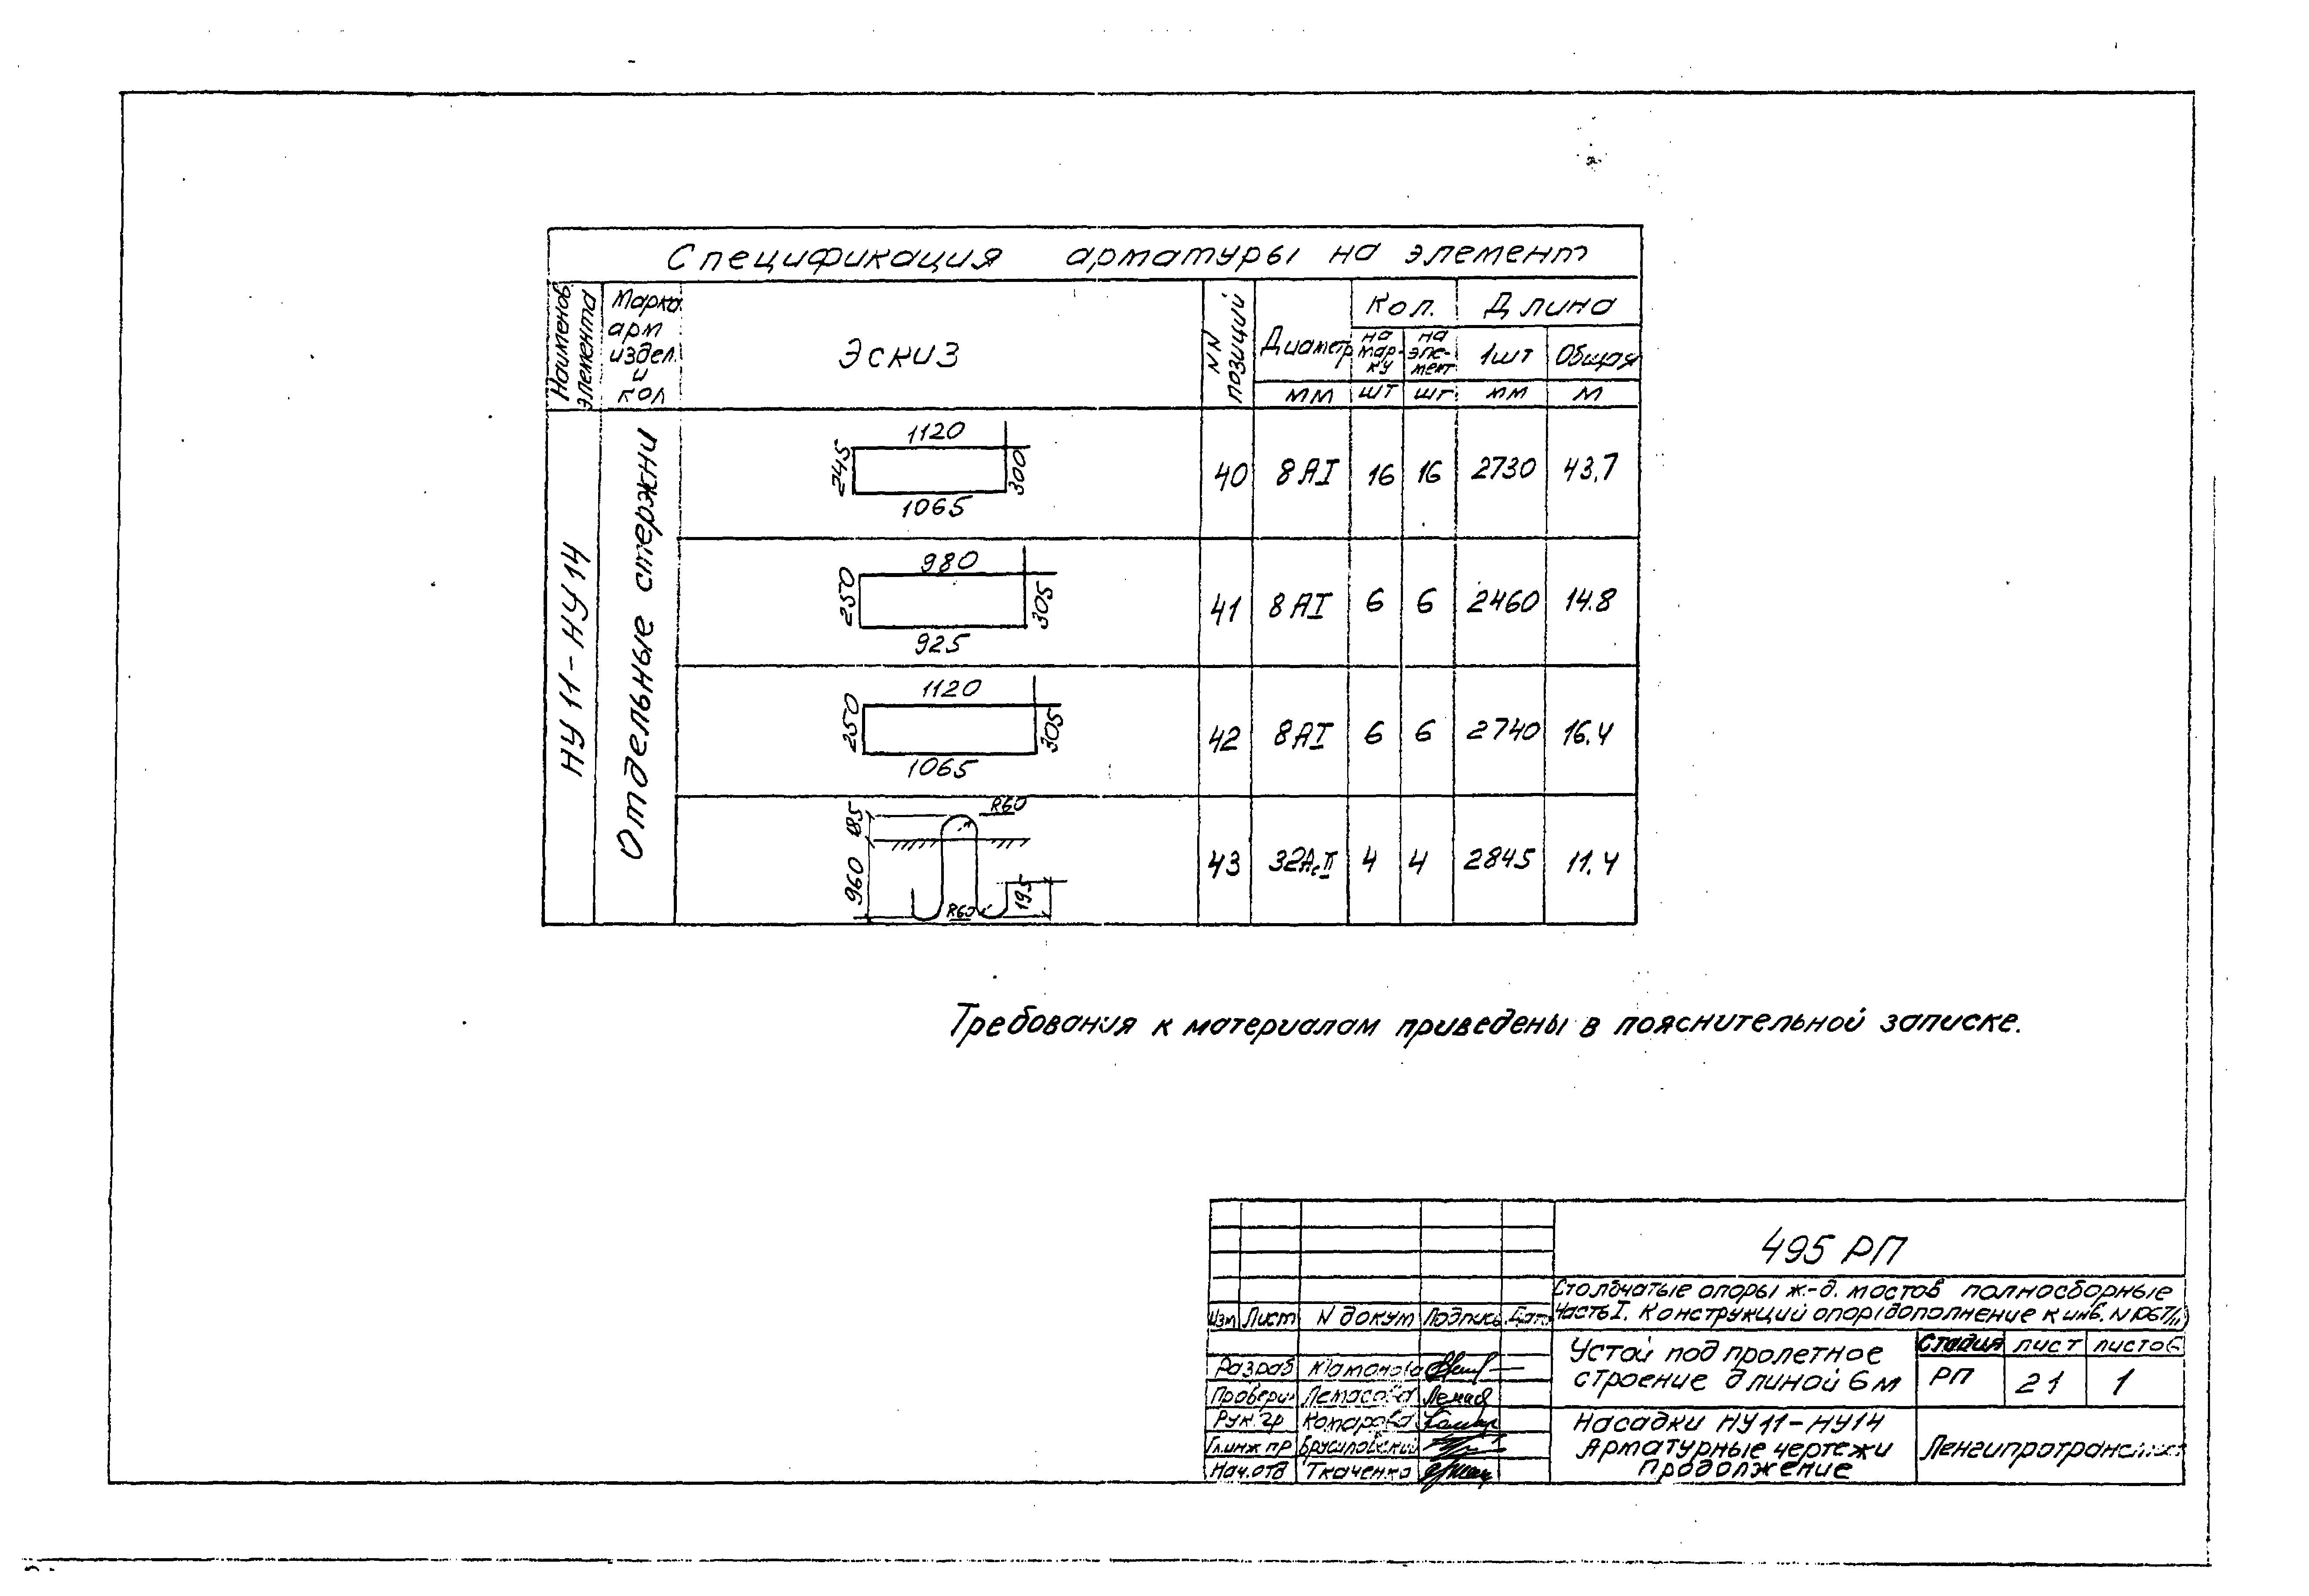 Спецификация арматуры на элемент
Наименов. элемента
Марка арм издел. и кол
Эскиз
NN позиций
Диаметр
Кол.
Длина
на мар-ку
на эле-мент
1шт
Общая
мм шт шт мм м
НУ 11 - НУ 14
Отдельные стержни
1120
245 300
1065
40 8АI 16 16 2730 43.7
980
250 305
925
41 8АI 6 6 2460 14.8
1120
250 305
1065
42 8АI 6 6 2740 16.4
R60
185
960
R60
195
43 32АсII 4 4 2845 11.4
Требования к материалам приведены в пояснительной записке.
495 РП
Столбчатые опоры ж.-д. мостов полносборные
Часть I. Конструкций опор (дополнение к инв. N
Изм Лист N докум Подпись Дата
Устой под пролетное
строение длиной 6 м
Стадия лист листов
РП 21 1
Разраб
Провери
Рук. гр
Гл.инж пр Брусиловский
Нач.отд Ткаченко
Насадки НУ11-НУ14
Арматурные чертежи
Продолжение
Ленгипротрансмост